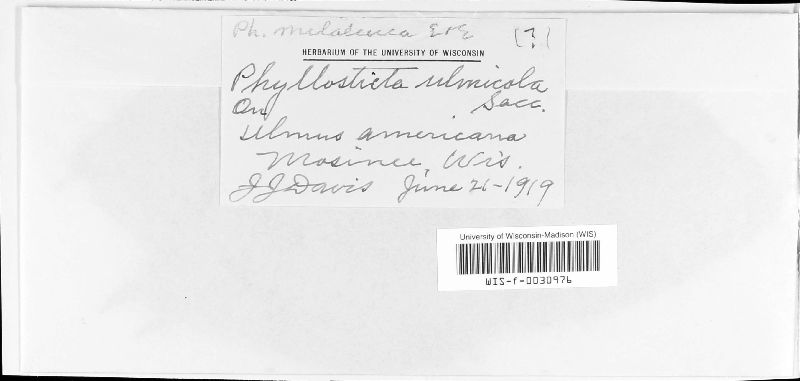 Ph. melaleuca E&E [?]
HERBARIUM OF THE UNIVERSITY OF WISCONSIN
Phyllosticta ulmicola
On Sacc.
Ulmus americana
Mosinee, Wis.
JJDavis June 21-1919
University of Wisconsin-Madison (WIS)
WIS-f-0030976